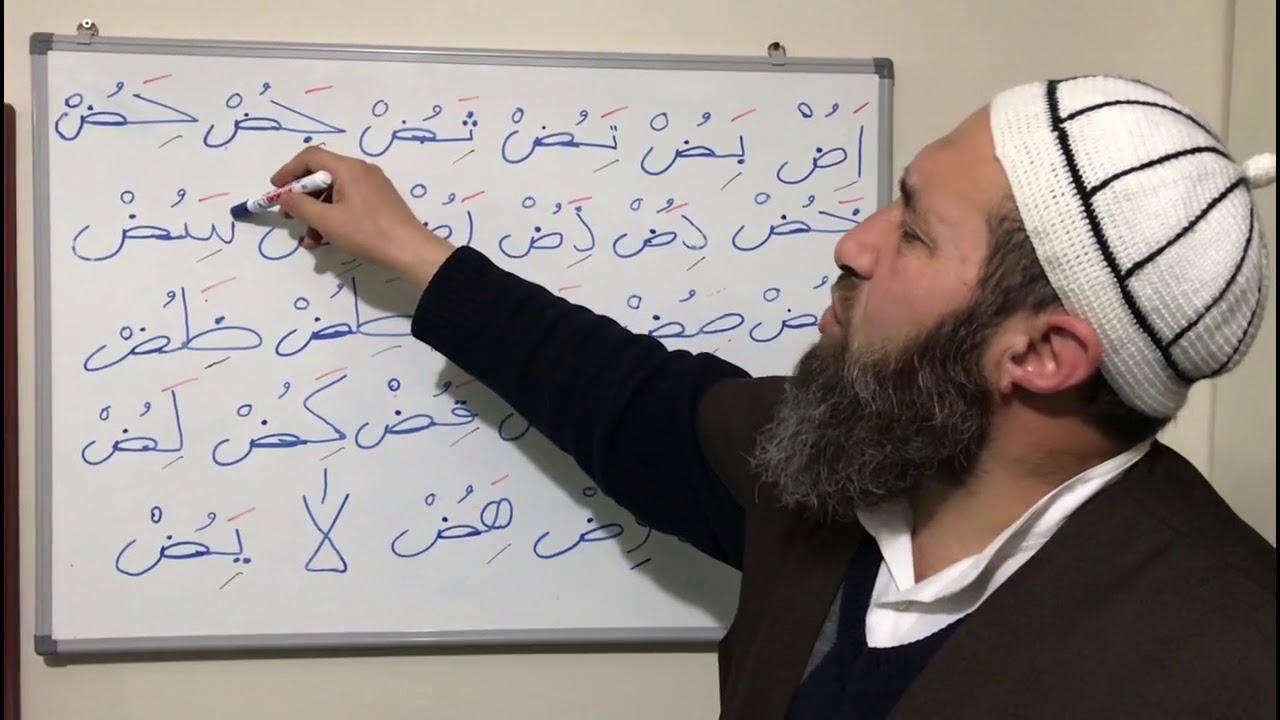 اَُِضْ بَُِضْ تَُِضْ ثَُِضْ جَُِضْ حَُِضْ
خَُِضْ دَُِضْ ذَُِضْ رَُِضْ سَُِضْ
صَُِضْ طَُِضْ ظَُِضْ
قَُِضْ كَُِضْ لَُِضْ
هَُِضْ لٰا يَُِضْ